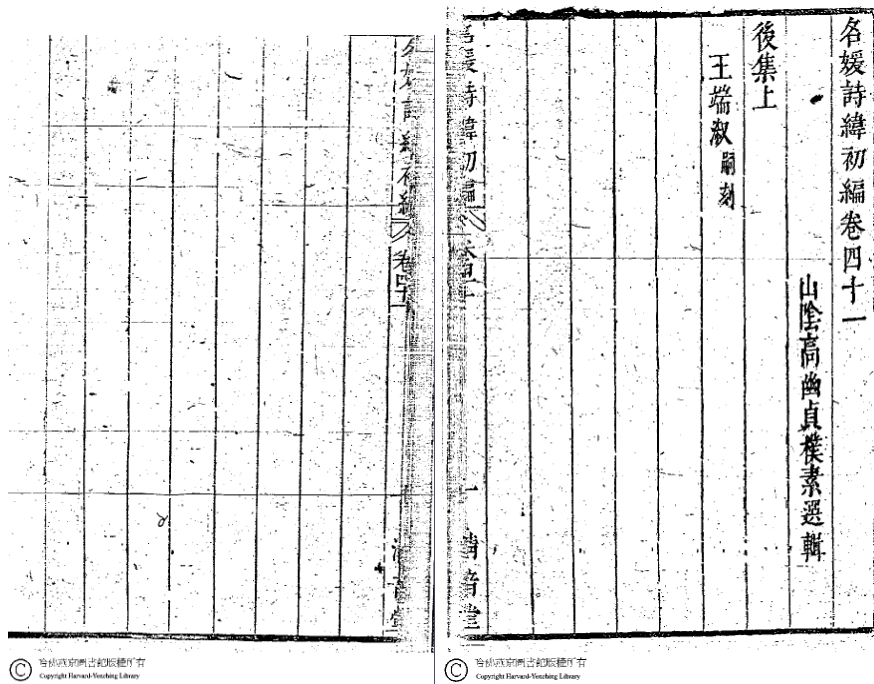 名媛詩緯初編卷四十一
山陰高幽貞樸素選輯
後集上
王端淑嗣刻
名媛詩緯初編 卷四十一 一 清音堂
名媛詩緯初編 卷四十一 清音堂
哈佛燕京圖書館版權所有
Copyright Harvard-Yenching Library
哈佛燕京圖書館版權所有
Copyright Harvard-Yenching Library